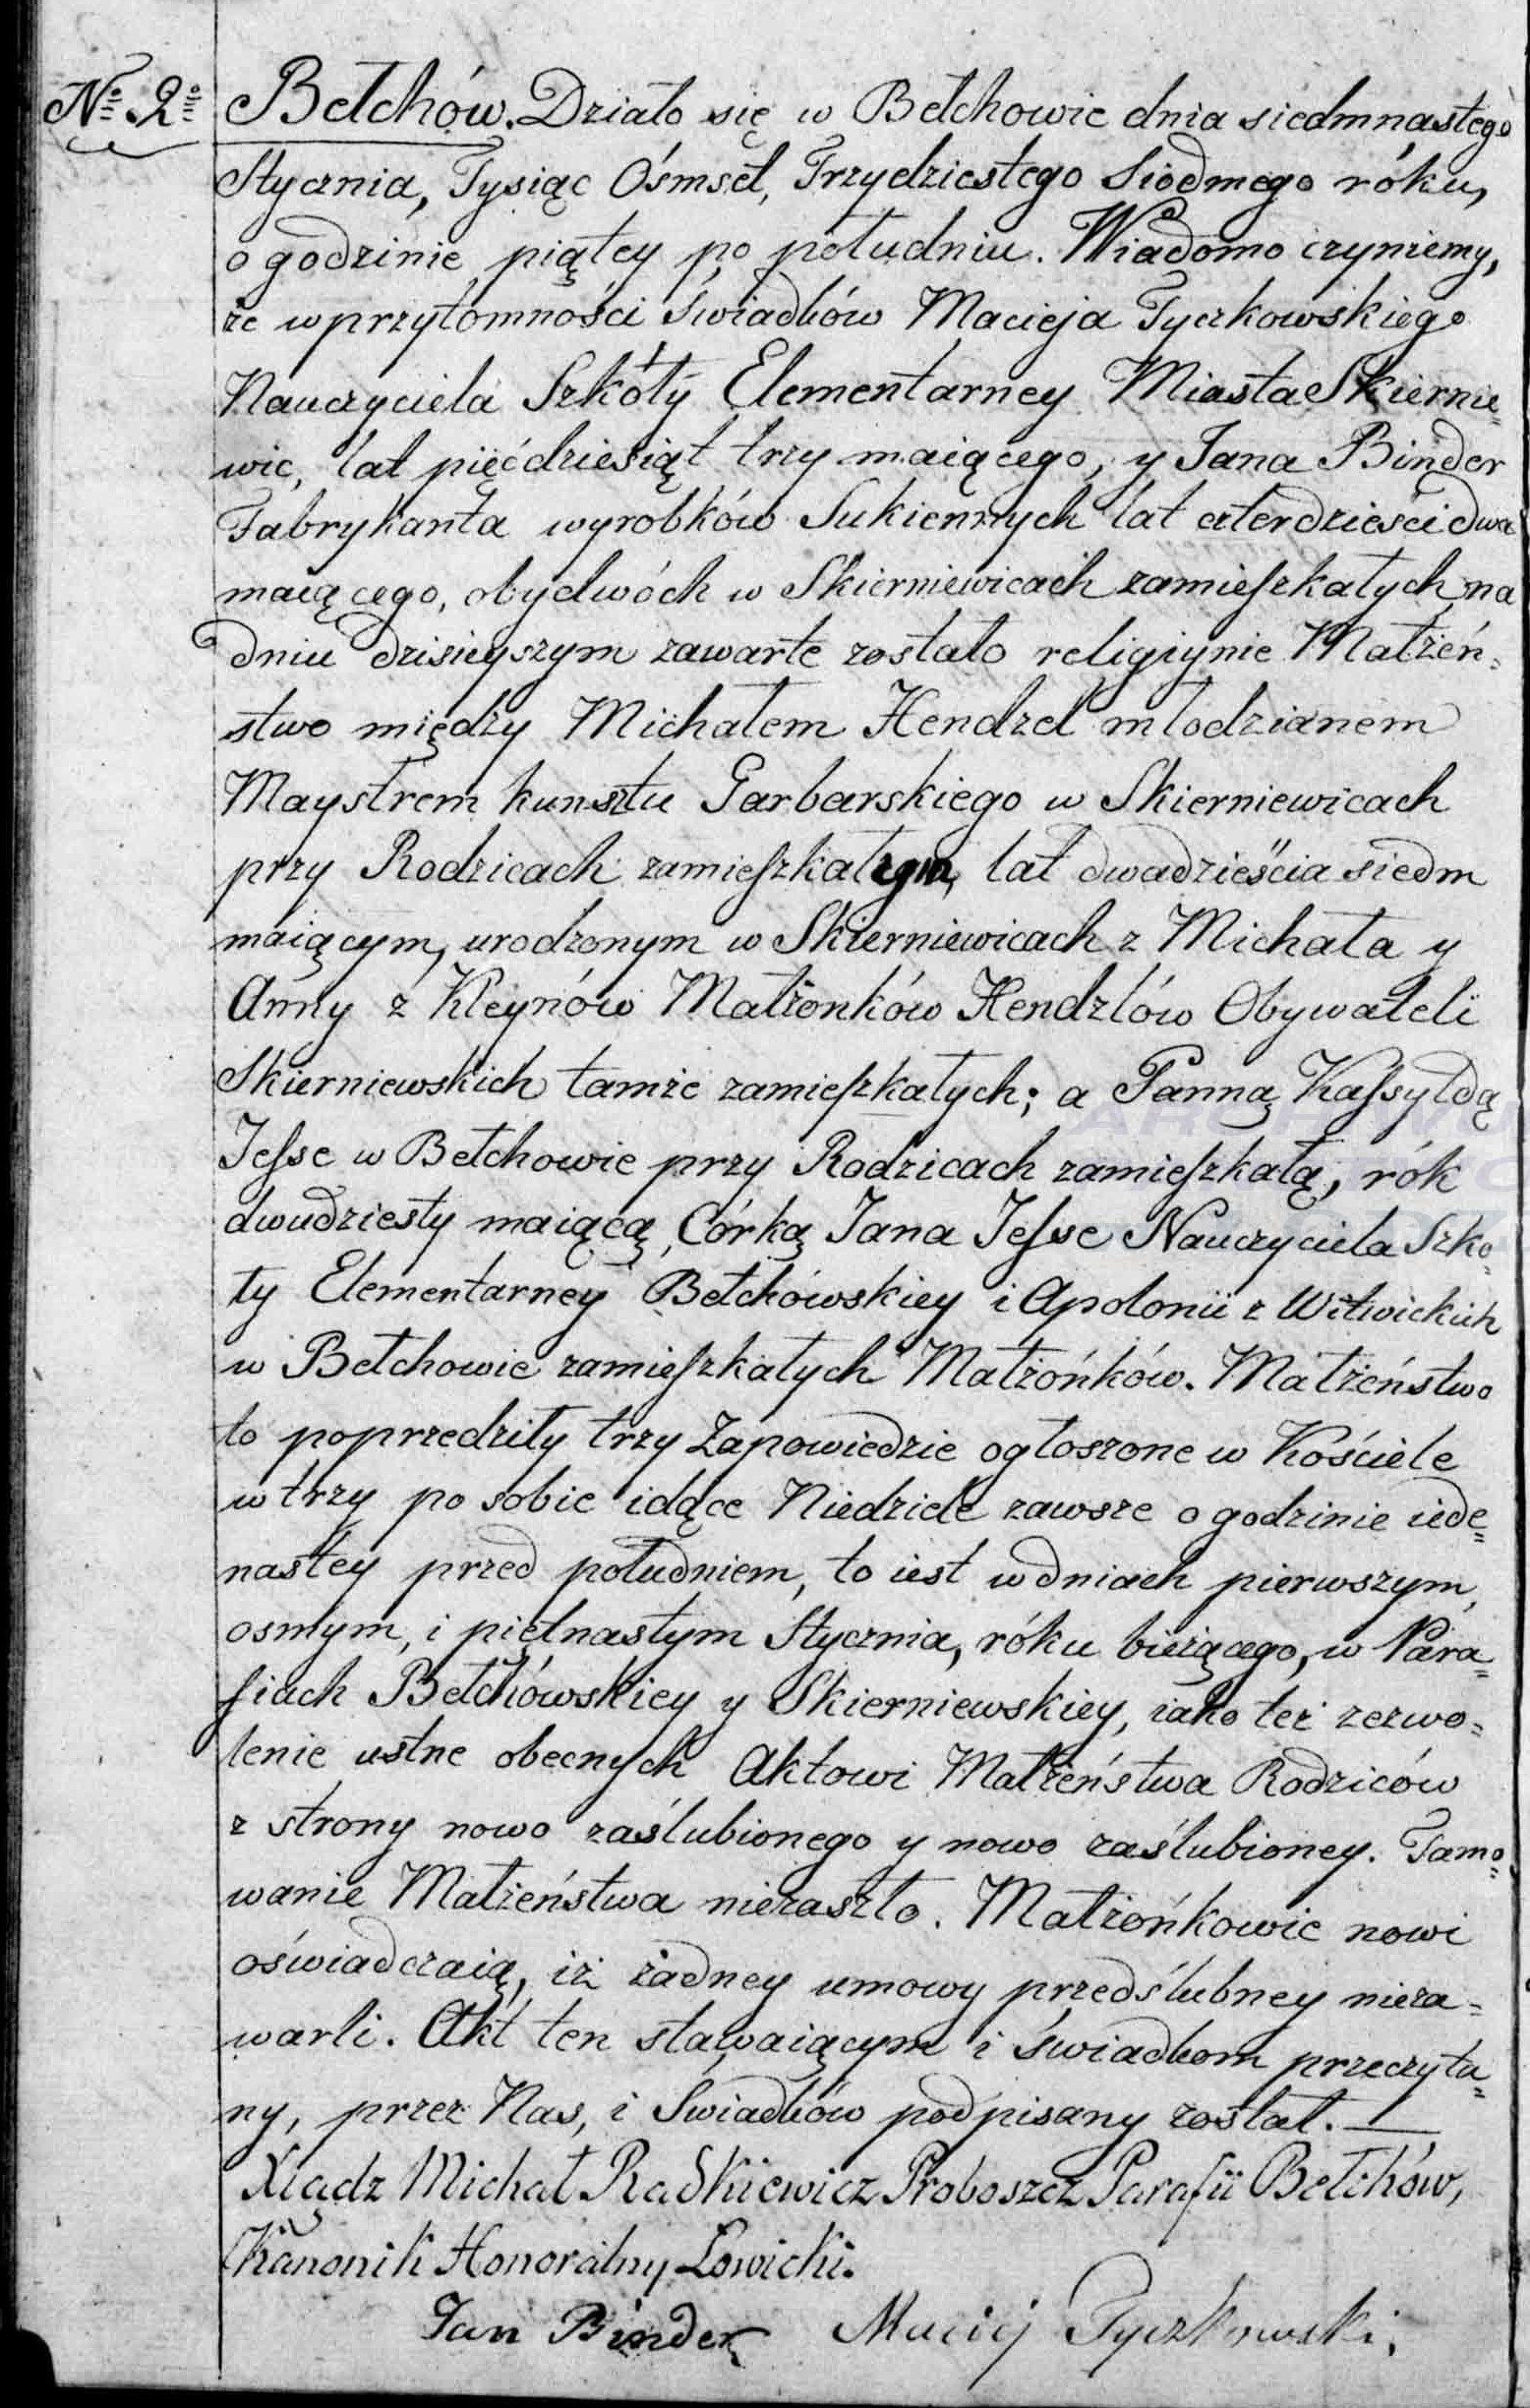 No 2o Bełchów. Działo się w Bełchowie dnia siedmnastego
Stycznia, Tysiąc Ośmset, Trzydziestego Siódmego róku,
o godzinie piątey po południu. Wiadomo czyniemy,
że w przytomności świadków Macieja Tyczkowskiego
Nauczyciela Szkoły Elementarney Miasta Skiernie=
wic, lat pięćdziesiąt trzy maiącego, y Jana Binder
Fabrykanta wyrobków Sukiennych lat czterdzieści dwa
maiącego, obydwóch w Skierniewicach zamieszkałych, na
dniu dzisieyszym zawarte zostało religiynie Małżeń=
stwo między Michałem Hendzel młodzianem
Maystrem kunsztu Garbarskiego w Skierniewicach
przy Rodzicach zamieszkałym, lat dwadzieścia siedm
maiącym, urodzonym w Skierniewicach z Michała y
Anny z Kleynów Małżonków Hendzlów Obywateli
Skierniewskich tamże zamieszkałych; a Panną Kassyldą
Jesse w Bełchowie przy Rodzicach zamieszkałą, rók
dwudziesty maiącą, Córką Jana Jesse Nauczyciela Szko=
ły Elementarney Bełchówskiey i Apolonii z Witwickich
w Bełchowie zamieszkałych Małżońków. Małżeństwo
to poprzedziły trzy Zapowiedzie ogłoszone w Kościele
w trzy po sobie idące Niedziele zawsze o godzinie iede=
nastey przed południem, to iest w dniach pierwszym,
osmym, i piętnastym Stycznia, róku bieżącego, w Para=
fiach Bełchówskiey y Skierniewskiey, iako też zezwo=
lenie ustne obecnych Aktowi Małżeństwa Rodziców
z strony nowo zaślubionego y nowo zaślubioney. Tamo=
wanie Małżeństwa niezaszło. Małżońkowie nowi
oświadczaią, iż żadney umowy przedślubney nieza=
warli. Akt ten stawaiącym i świadkom przeczyta=
ny, przez Nas, i Świadków podpisany został. —
Xiądz Michał Radkiewicz Proboszcz Parafii Bełchów,
Kanonik Honoralny Łowicki.
Jan Binder Maciej Tyczkowski.